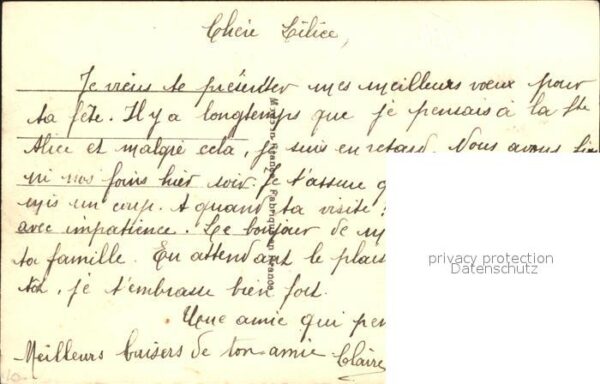 Chère Lilice,
Je viens te présenter mes meilleurs vœux pour
ta fête. Il y a longtemps que je pensais à la Ste
Alice et malgré cela, je suis en retard. Nous avons
ni nos foins hier soir. Je t'assure
mis un coup. A quand ta visite
avec impatience. Le bonjour de
ta famille. En attendant le
toi, je t'embrasse bien fort.
Une amie qui
Meilleurs baisers de ton amie Claire
Made in France Fabriqué en France
privacy protection
Datenschutz